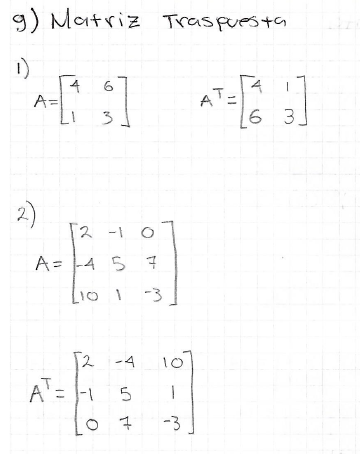 g) Matriz Traspuesta
1)
A = [4 6
1 3]
A^T = [4 1
6 3]
2)
A = [2 -1 0
-4 5 7
10 1 -3]
A^T = [2 -4 10
-1 5 1
0 7 -3]